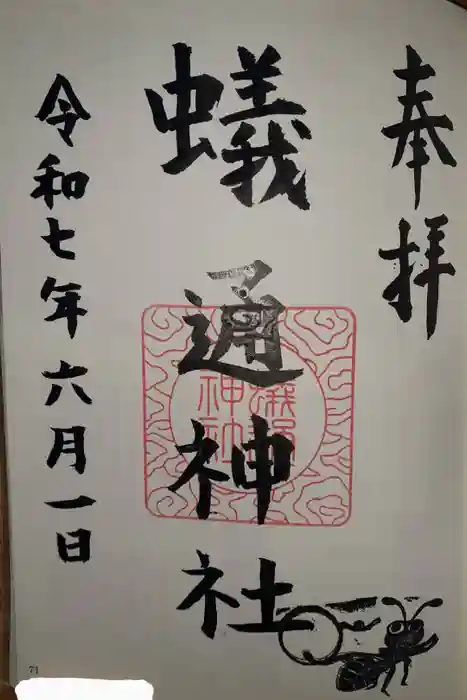 奉拝
蟻通神社
蟻通神社
令和七年六月一日
71